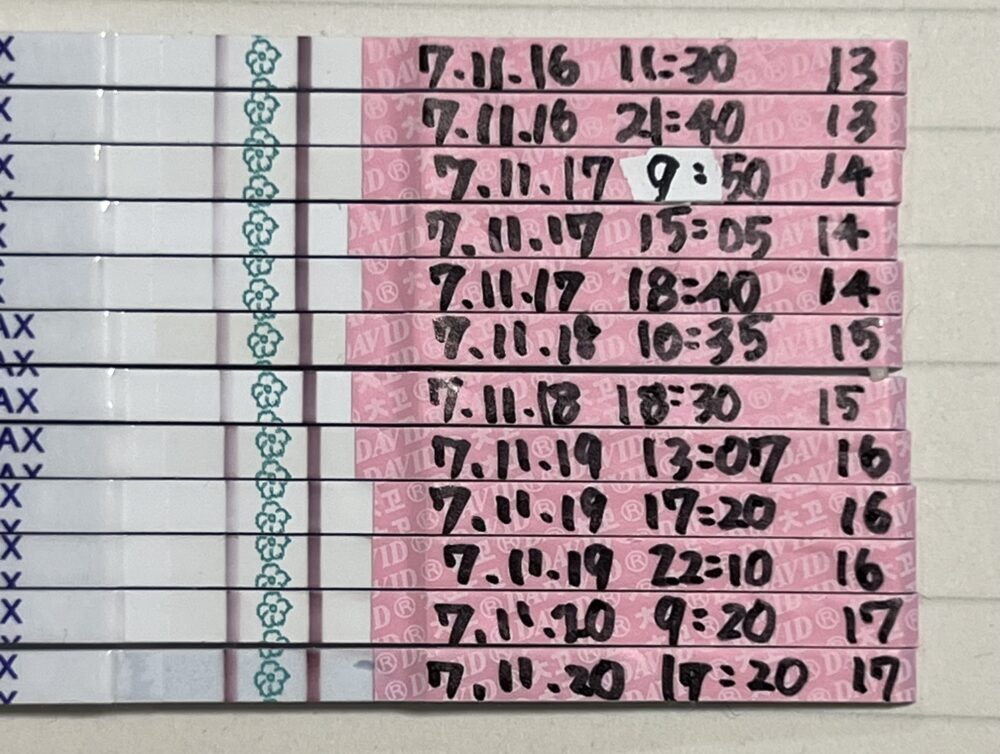 X 7.11.16 11:30 13
X 7.11.16 21:40 13
X 7.11.17 9:50 14
X 7.11.17 15:05 14
X 7.11.17 18:40 14
AX 7.11.18 10:35 15
AX 7.11.18 18:30 15
AX 7.11.19 13:07 16
X 7.11.19 17:20 16
X 7.11.19 22:10 16
X 7.11.20 9:20 17
X 7.11.20 17:20 17